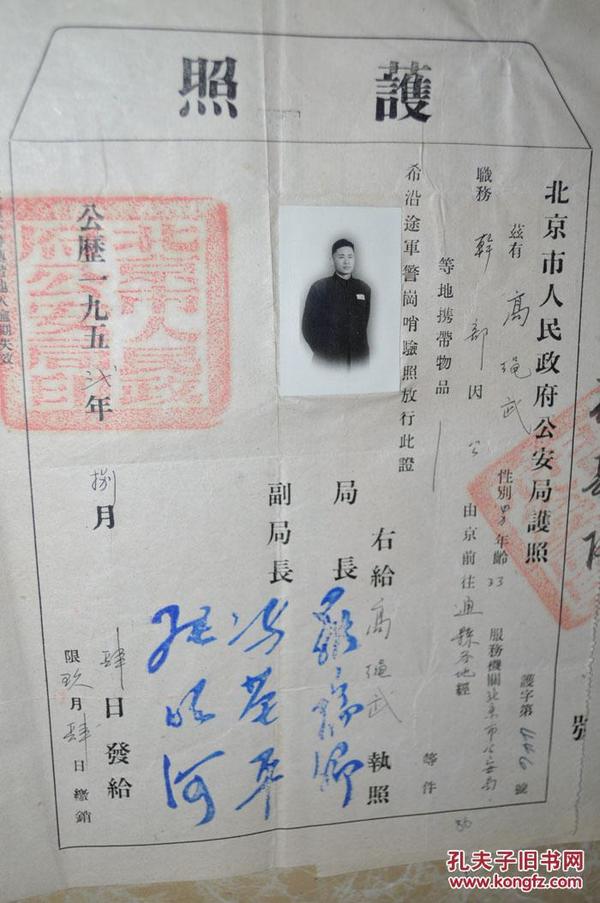 護照
北京市人民政府公安局護照
護字第646號
茲有高繩武性別男年齡33服務機關北京市公安局
職務幹部因公由京前往通縣各地經
等地攜帶物品 等件
希沿途軍警崗哨驗照放行此證
右給高繩武執照
局長
副局長 馮基平
張明河
公歷一九五弍年捌月肆日發給
限玖月肆日繳銷
北京市人民政府公安局印
號
孔夫子旧书网
www.kongfz.com